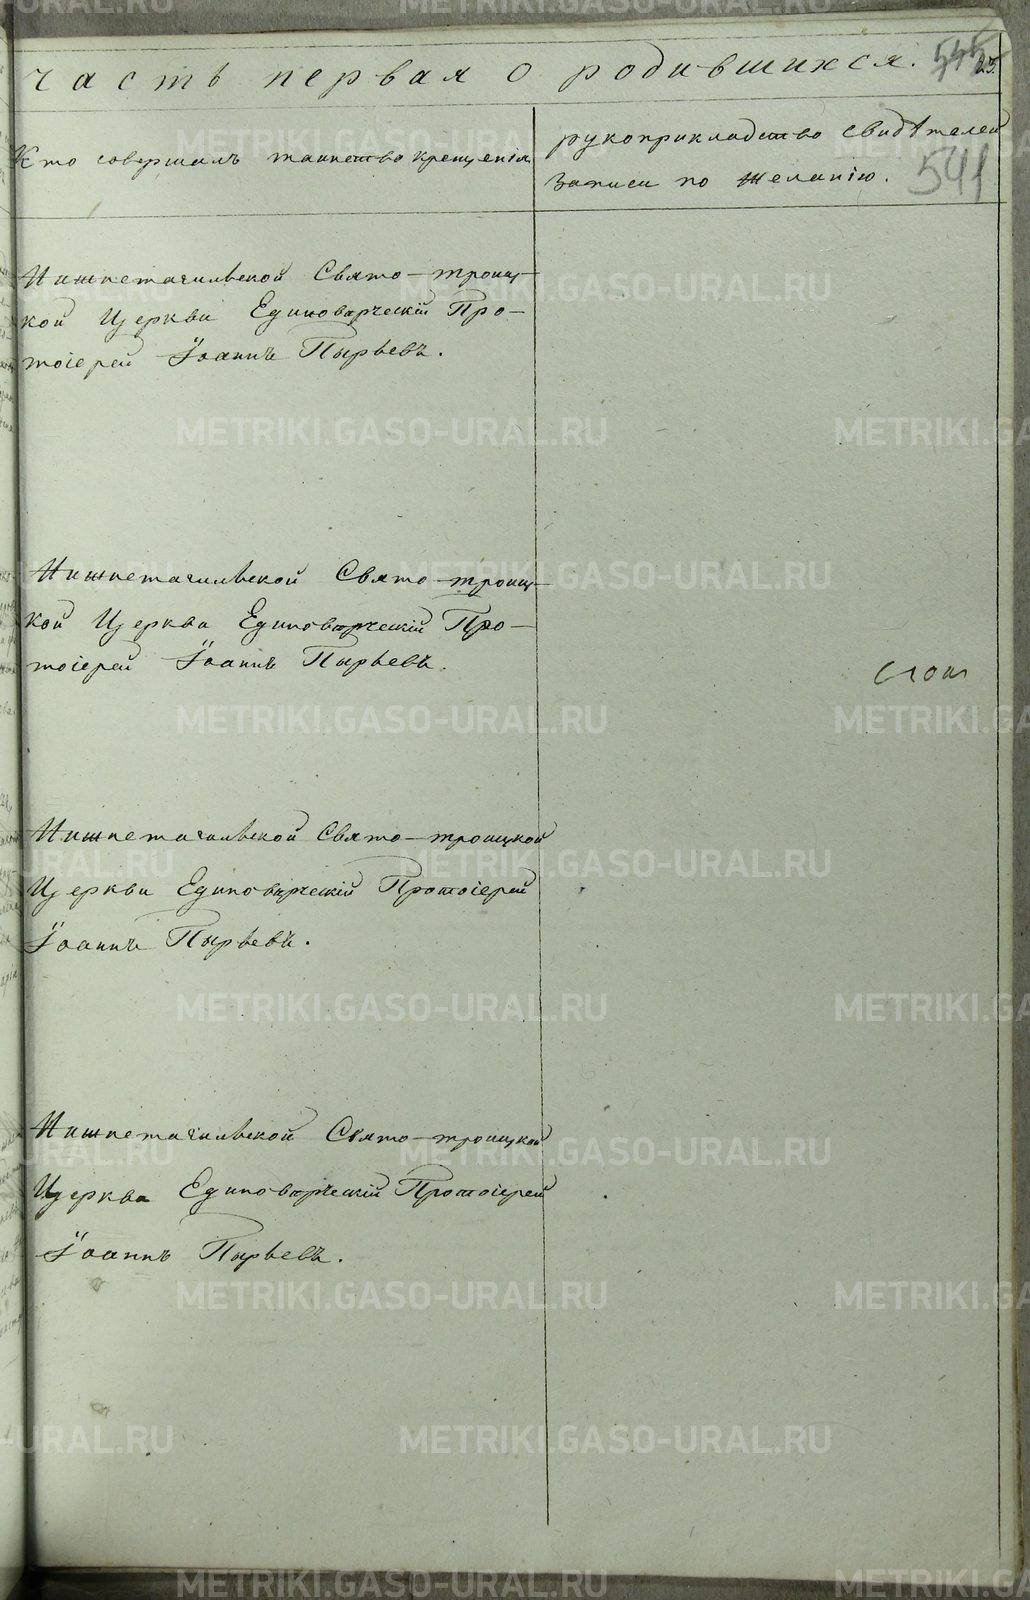 часть первая о родившихся. 545 25.
Кто совершалъ таинство крещенія
рукоприкладство свидѣтелей
записи по желанію. 541
Нижнетагильской Свято-троиц-
кой Церкви Единоверческій Про-
тоіерей Іоаннъ Пырьевъ.
Нижнетагильской Свято-троиц-
кой Церкви Единоверческій Про-
тоіерей Іоаннъ Пырьевъ.
Нижнетагильской Свято-троицкой
Церкви Единоверческій Протоіерей
Іоаннъ Пырьевъ.
Нижнетагильской Свято-троицкой
Церкви Единоверческій Протоіерей
Іоаннъ Пырьевъ.
METRIKI.GASO-URAL.RU